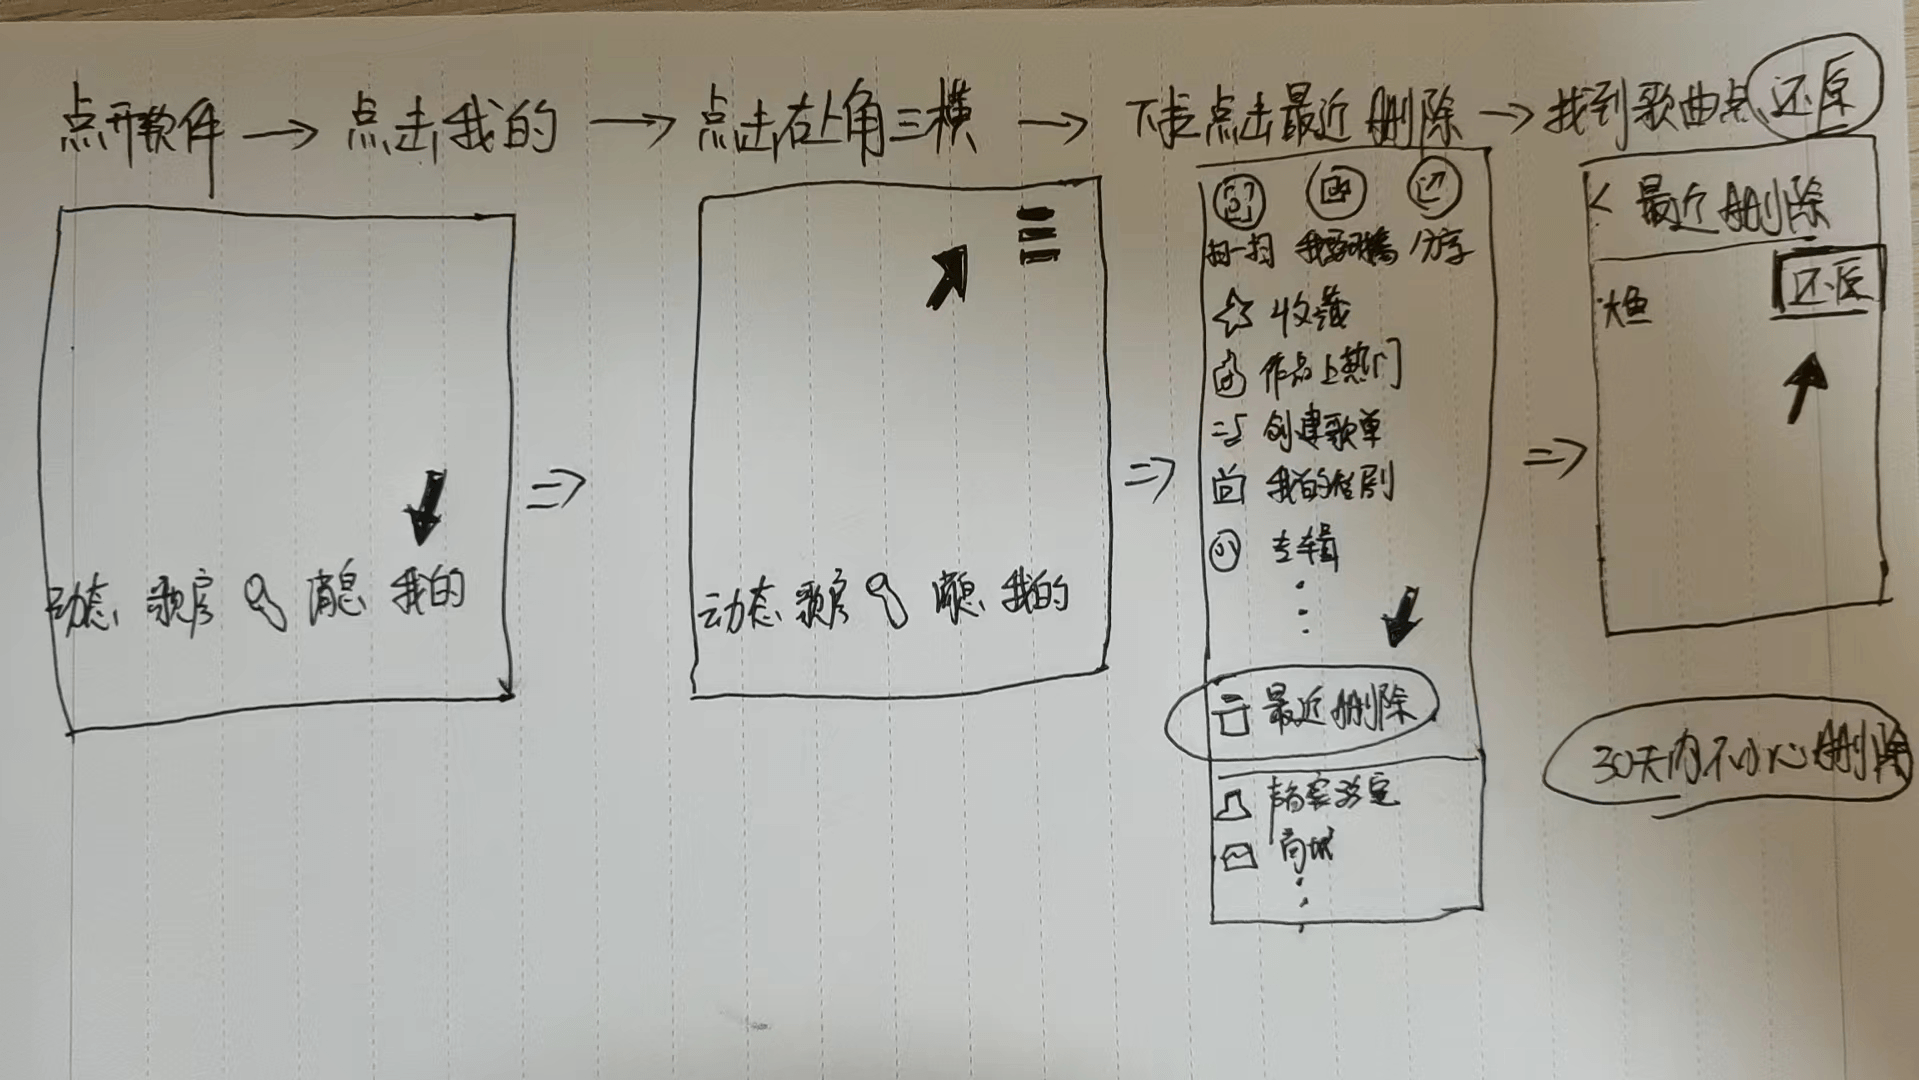 点开软件 → 点击我的 → 点击右上角三横 → 下拉点击最近删除 → 找到歌曲点还原
动态 歌房 消息 我的
动态 歌房 消息 我的
扫一扫 我要直播 分享
收藏
作品上热门
创建歌单
我的短剧
专辑
最近删除
商城
< 最近删除
大鱼 还原
30天内不小心删除